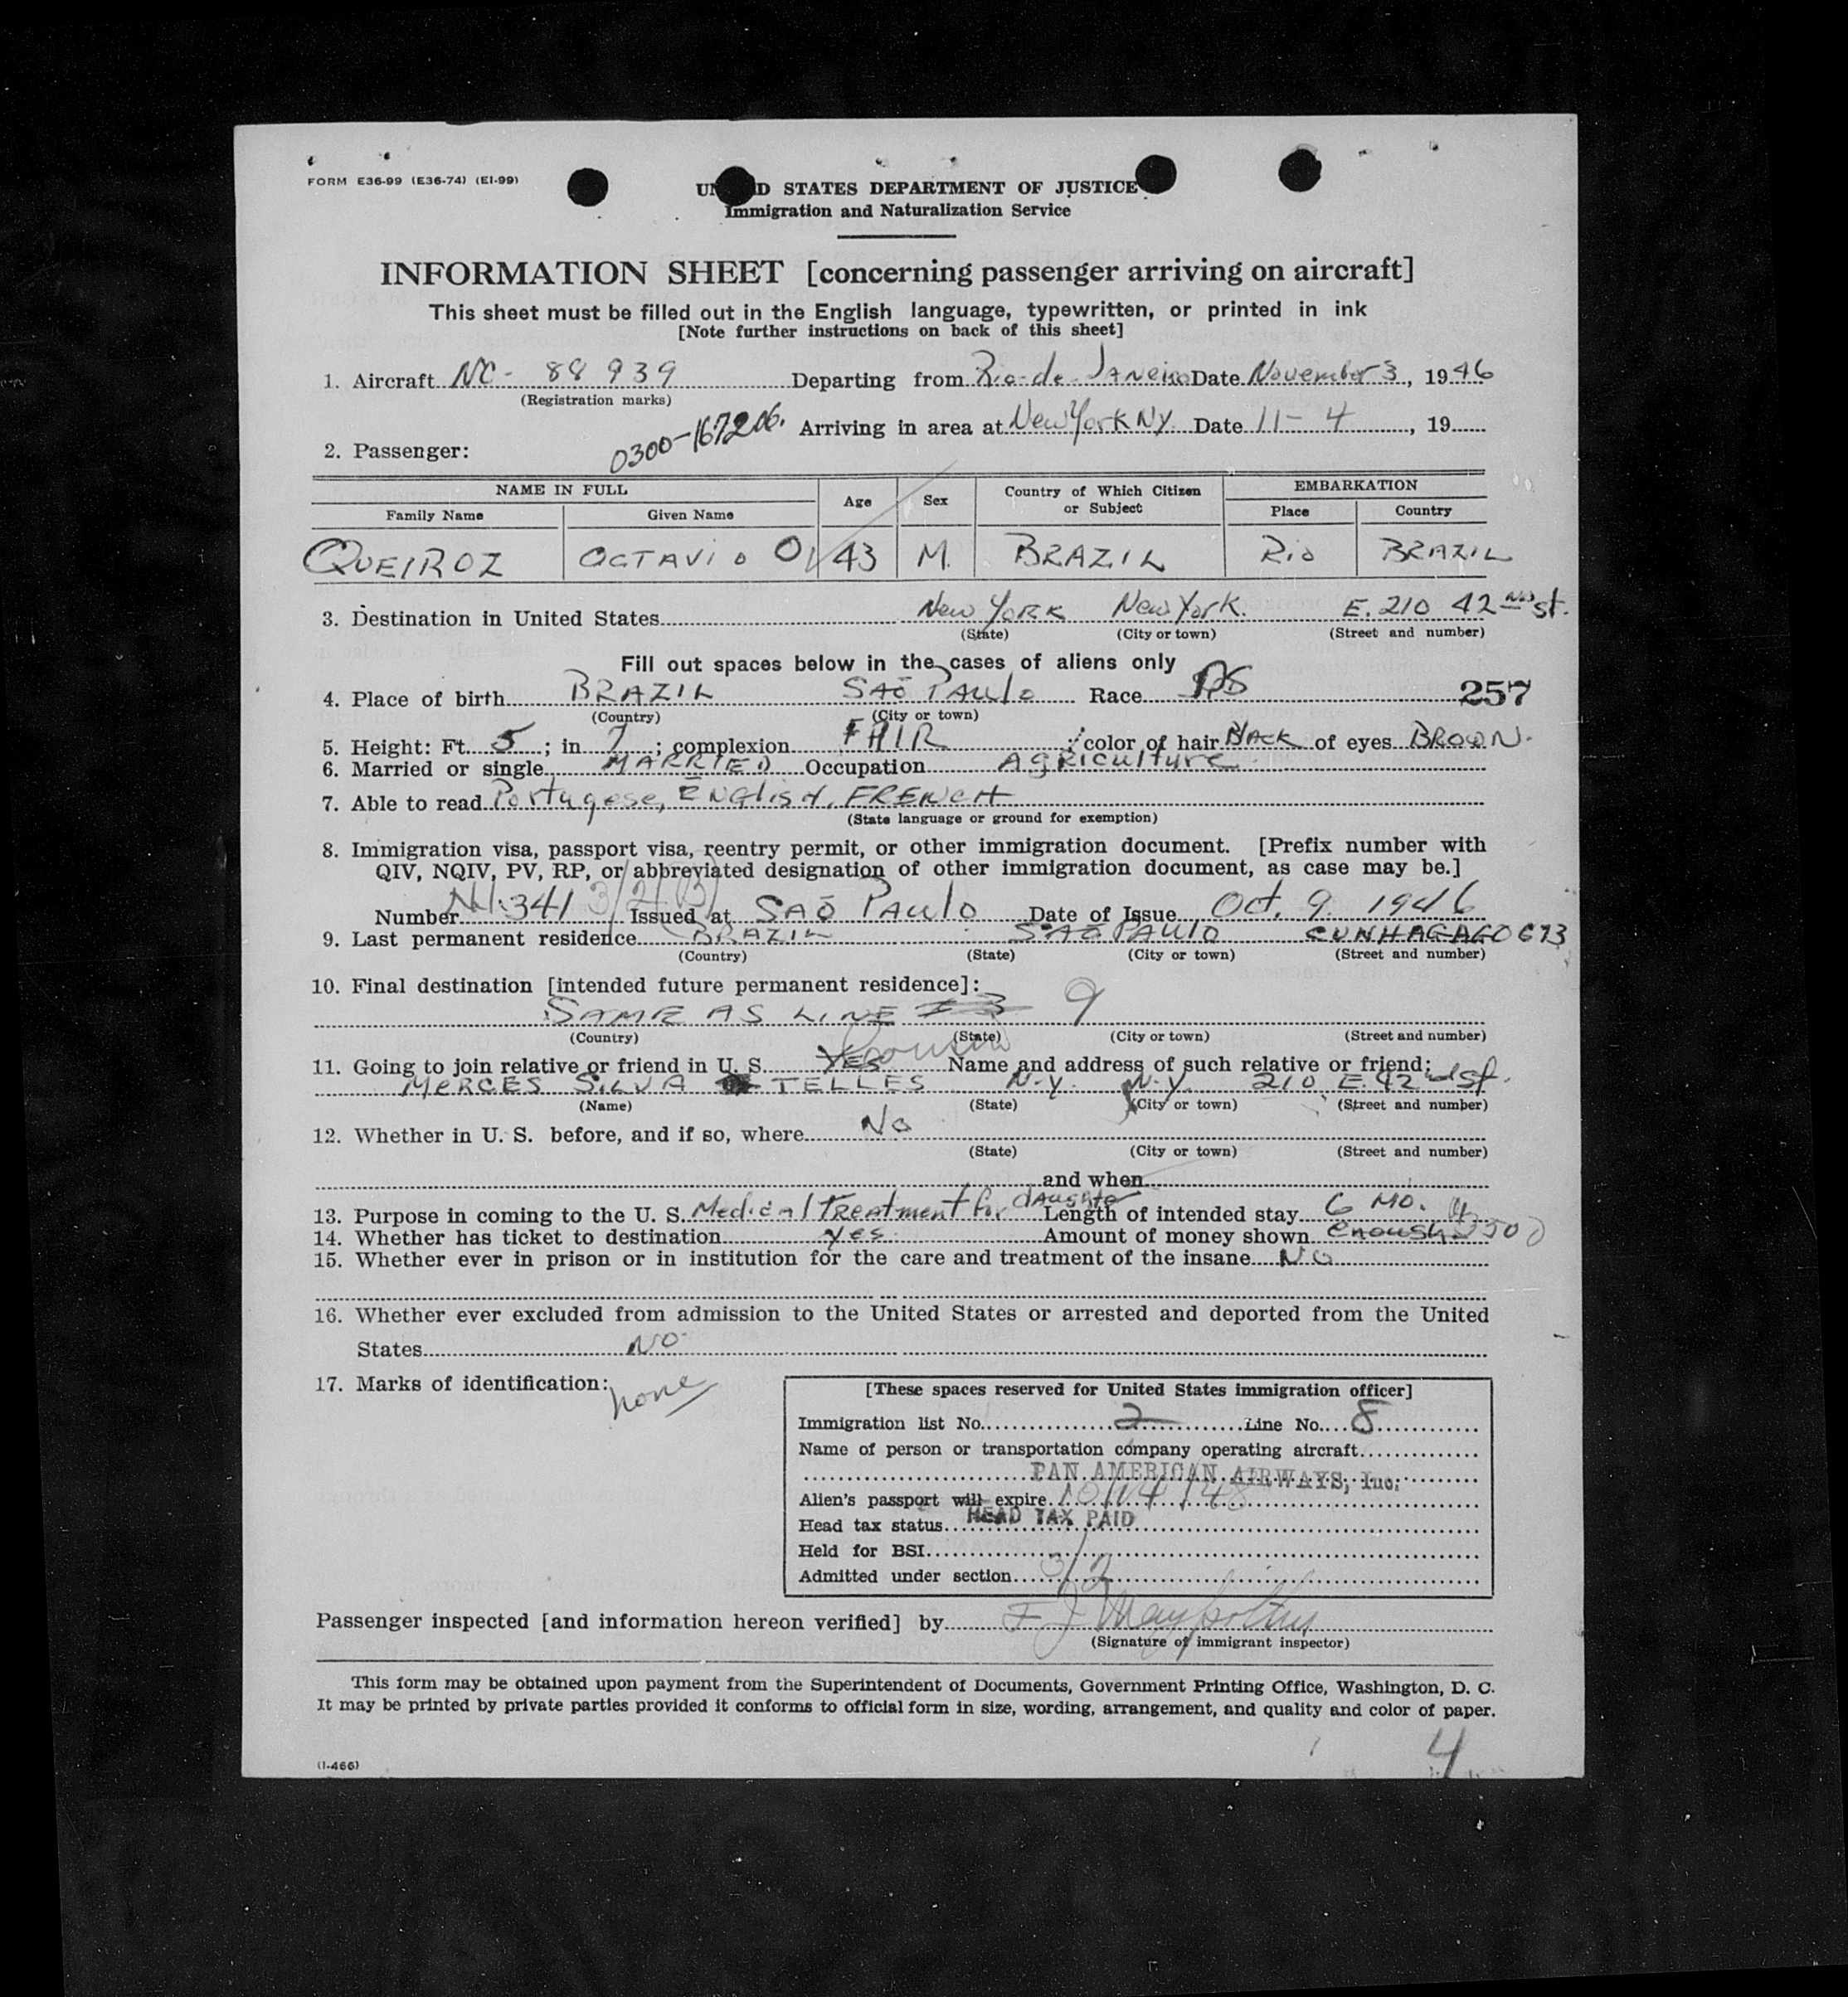 FORM E36-99 (E36-74) (EI-99)
D STATES DEPARTMENT OF JUSTICE
Immigration and Naturalization Service
INFORMATION SHEET [concerning passenger arriving on aircraft]
This sheet must be filled out in the English language, typewritten, or printed in ink
[Note further instructions on back of this sheet]
1. Aircraft NC- 88939 Departing from Rio-de-Janeiro Date November 3, 1946
(Registration marks)
0300-167206. Arriving in area at New York NY. Date 11-4, 19
2. Passenger:
NAME IN FULL Age Sex Country of Which Citizen or Subject EMBARKATION
Family Name Given Name Place Country
QUEIROZ OCTAVIO 43 M. BRAZIL Rio BRAZIL
3. Destination in United States New York New York. E. 210 42nd St.
(State) (City or town) (Street and number)
Fill out spaces below in the cases of aliens only
4. Place of birth BRAZIL SAO PAULO Race 257
(Country) (City or town)
5. Height: Ft. 5; in 7; complexion FAIR; color of hair Black of eyes BROWN.
6. Married or single MARRIED Occupation Agriculture
7. Able to read Portugese, English, FRENCH
(State language or ground for exemption)
8. Immigration visa, passport visa, reentry permit, or other immigration document. [Prefix number with
QIV, NQIV, PV, RP, or abbreviated designation of other immigration document, as case may be.]
Number 341 3/2(B) Issued at SAO PAULO Date of Issue Oct. 9. 1946
9. Last permanent residence BRAZIL SAO PAULO CUNHAGAGO 673
(Country) (State) (City or town) (Street and number)
10. Final destination [intended future permanent residece]:
SAME AS LINE 3 9
(Country) (State) (City or town) (Street and number)
11. Going to join relative or friend in U. S. YES Cousin Name and address of such relative or friend:
MERCES SILVA TELLES N.Y. N.Y. 210 E. 42nd St.
(Name) (State) (City or town) (Street and number)
12. Whether in U. S. before, and if so, where No
(State) (City or town) (Street and number)
and when
13. Purpose in coming to the U. S. Medical Treatment for daughter Length of intended stay 6 MO.
14. Whether has ticket to destination yes Amount of money shown enough
15. Whether ever in prison or in institution for the care and treatment of the insane NO
16. Whether ever excluded from admission to the United States or arrested and deported from the United
States NO
17. Marks of identification: none
[These spaces reserved for United States immigration officer]
Immigration list No. 2 Line No. 8
Name of person or transportation company operating aircraft
PAN AMERICAN AIRWAYS, Inc.
Alien's passport will expire 10/14/48
Head tax status HEAD TAX PAID
Held for BSI
Admitted under section 3/2
Passenger inspected [and information hereon verified] by
(Signature of immigrant inspector)
This form may be obtained upon payment from the Superintendent of Documents, Government Printing Office, Washington, D. C.
It may be printed by private parties provided it conforms to official form in size, wording, arrangement, and quality and color of paper.
4
(I-466)